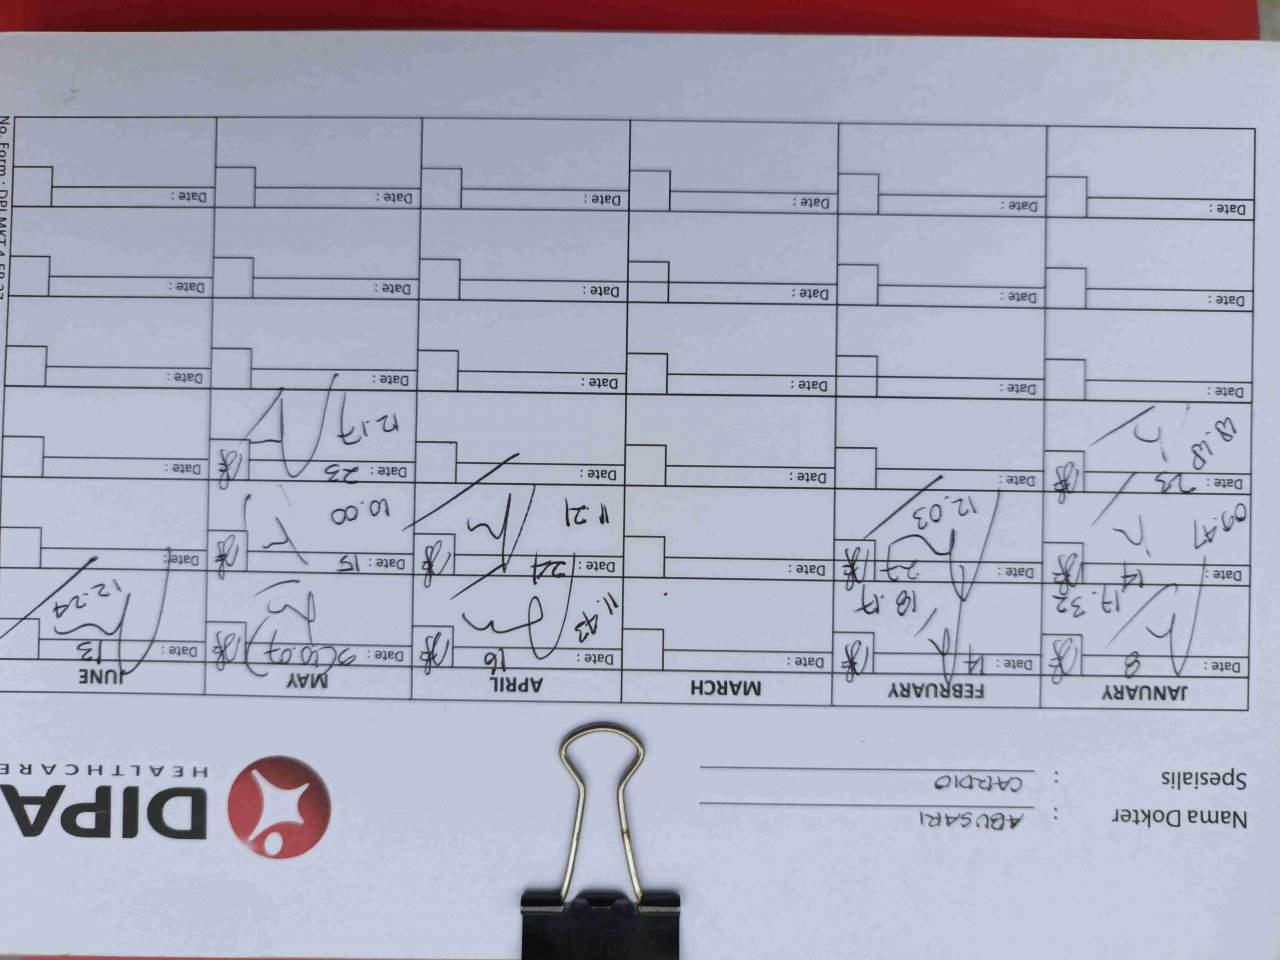 Nama Dokter : ABUSARI
Spesialis : CARDIO
DIPA
HEALTHCARE
JANUARY FEBRUARY MARCH APRIL MAY JUNE
Date : 8 Date : 14 Date : Date : 16 Date : 10.07 Date : 13
17.32 18.17 11.43 12.24
Date : 14 Date : 27 Date : Date : 24 Date : 15 Date :
09.47 12.03 11.21 10.00
Date : 23 Date : Date : Date : Date : 23 Date :
18.18 12.17
Date : Date : Date : Date : Date : Date :
Date : Date : Date : Date : Date : Date :
Date : Date : Date : Date : Date : Date :
No. Form : DPI.MKT.4.FR